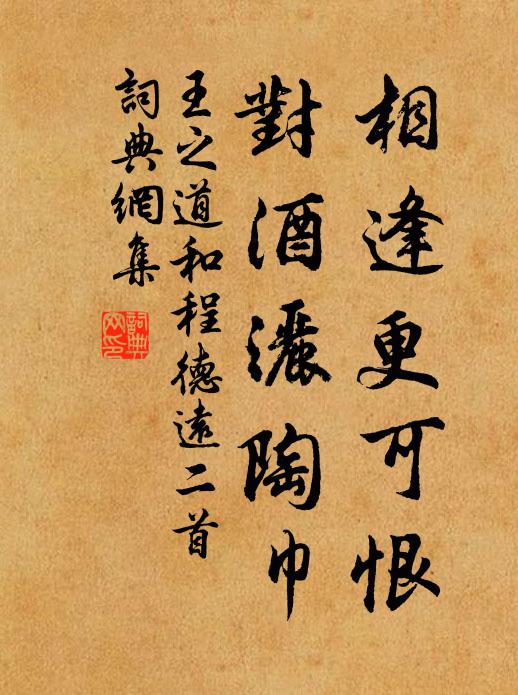 相逢更可恨
對酒漉陶巾
王之道和程德遠二首
詞典網集
詞典
网印